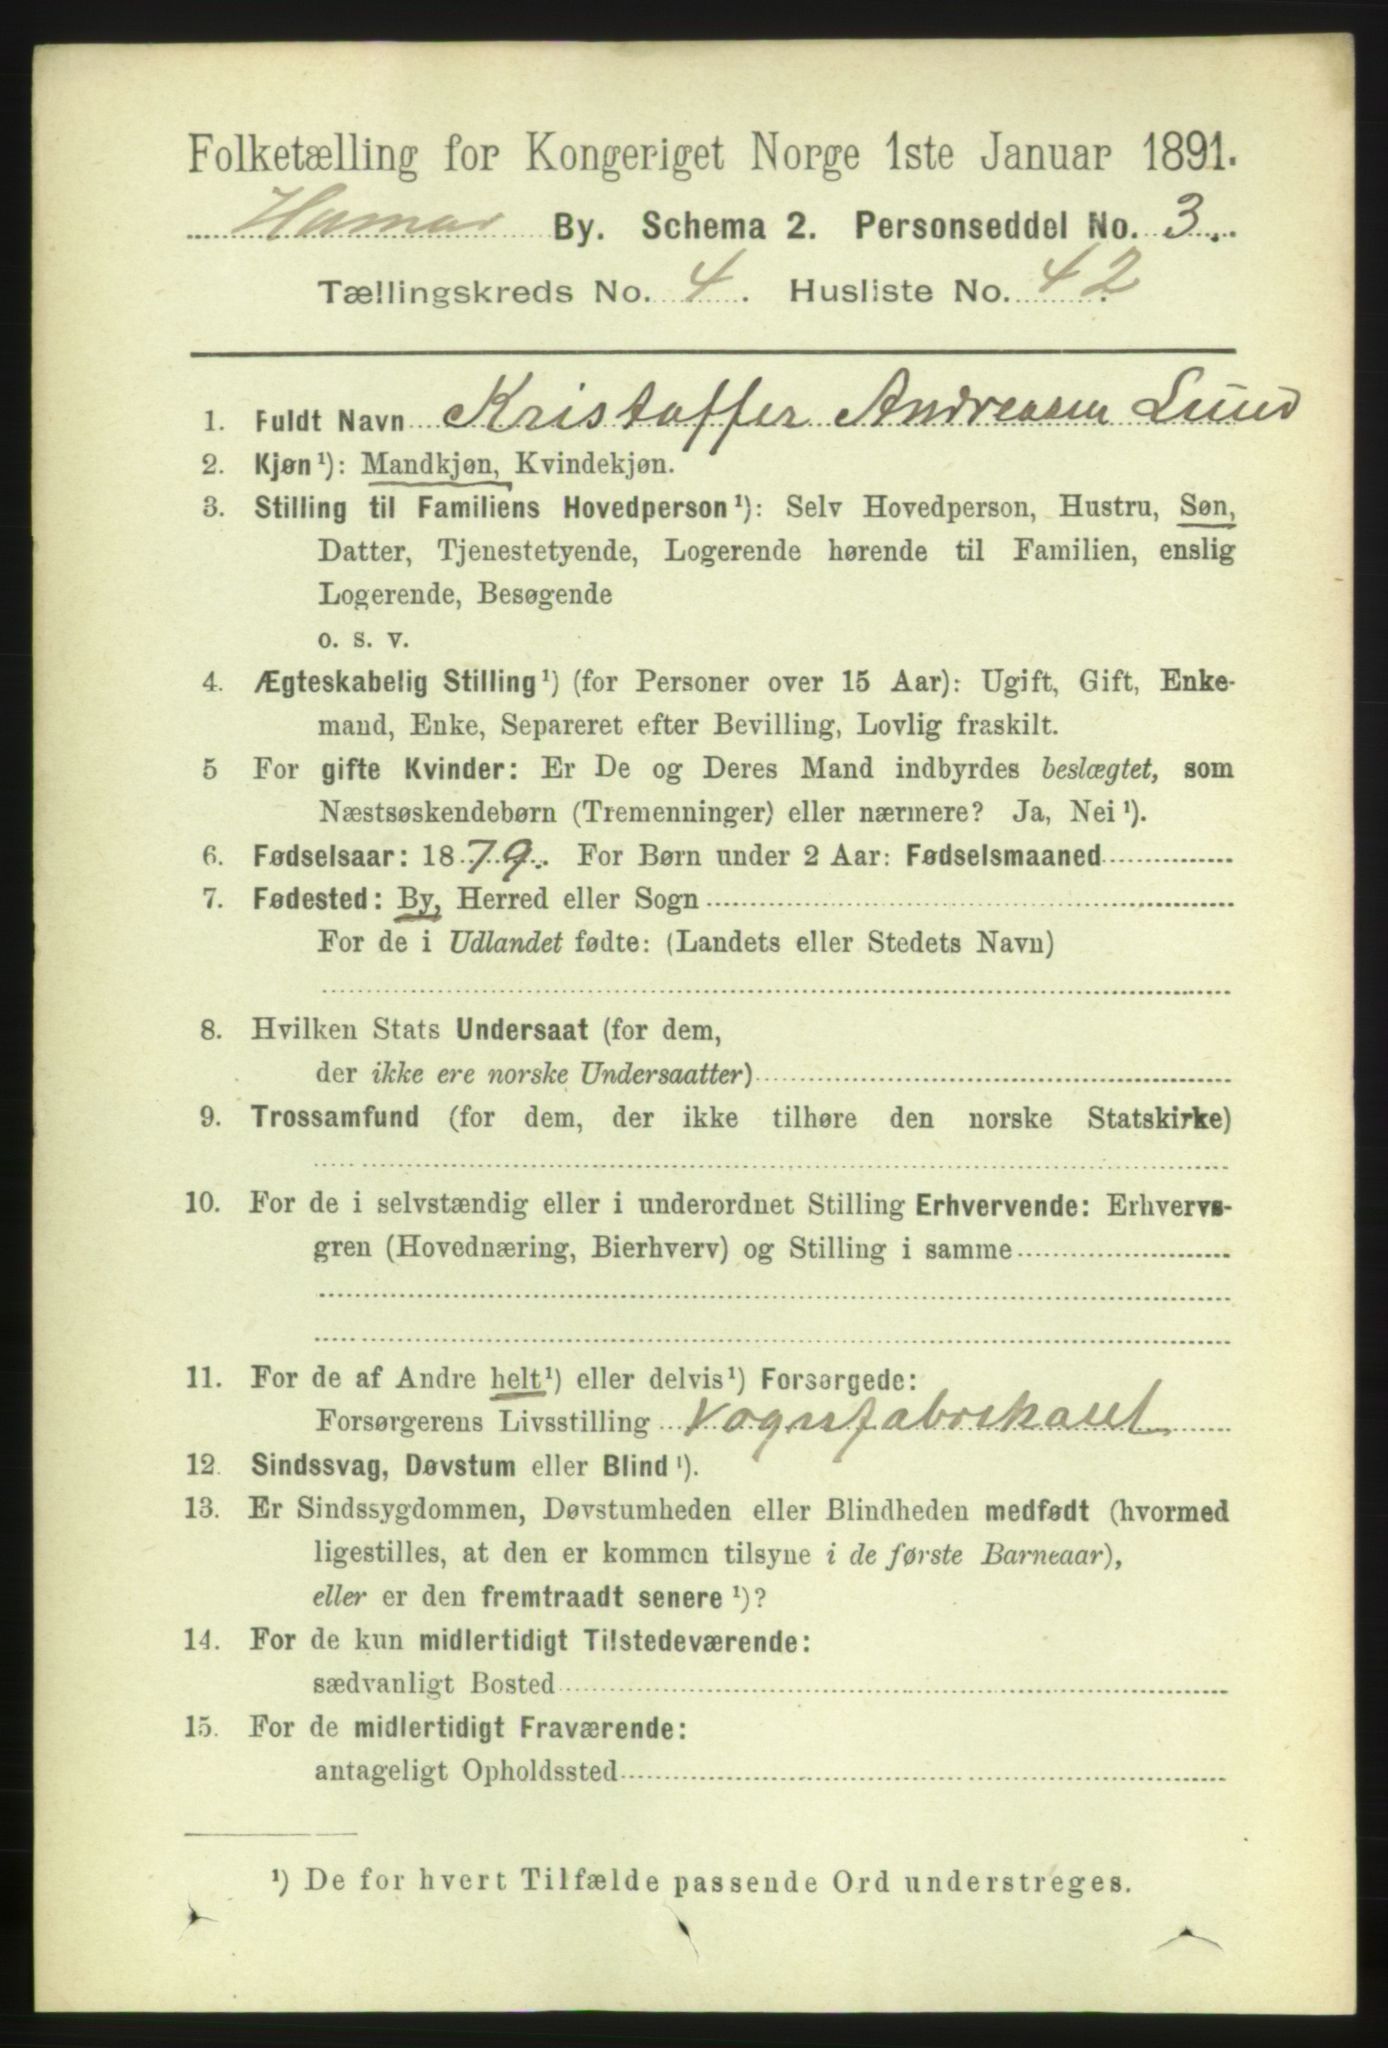 Folketælling for Kongeriget Norge 1ste Januar 1891.
Hamar By. Schema 2. Personseddel No. 3.
Tællingskreds No. 4. Husliste No. 42
1. Fuldt Navn Kristoffer Andreasen Lund
2. Kjøn¹): Mandkjøn, Kvindekjøn.
3. Stilling til Familiens Hovedperson¹): Selv Hovedperson, Hustru, Søn,
Datter, Tjenestetyende, Logerende hørende til Familien, enslig
Logerende, Besøgende
o. s. v.
4. Ægteskabelig Stilling¹) (for Personer over 15 Aar): Ugift, Gift, Enke-
mand, Enke, Separeret efter Bevilling, Lovlig fraskilt.
5 For gifte Kvinder: Er De og Deres Mand indbyrdes beslægtet, som
Næstsøskendebørn (Tremenninger) eller nærmere? Ja, Nei¹).
6. Fødselsaar: 1879. For Børn under 2 Aar: Fødselsmaaned
7. Fødested: By, Herred eller Sogn
For de i Udlandet fødte: (Landets eller Stedets Navn)
8. Hvilken Stats Undersaat (for dem,
der ikke ere norske Undersaatter)
9. Trossamfund (for dem, der ikke tilhøre den norske Statskirke)
10. For de i selvstændig eller i underordnet Stilling Erhvervende: Erhvervs-
gren (Hovednæring, Bierhverv) og Stilling i samme
11. For de af Andre helt¹) eller delvis¹) Forsørgede:
Forsørgerens Livsstilling Vognfabrikant
12. Sindssvag, Døvstum eller Blind¹).
13. Er Sindssygdommen, Døvstumheden eller Blindheden medfødt (hvormed
ligestilles, at den er kommen tilsyne i de første Barneaar),
eller er den fremtraadt senere¹)?
14. For de kun midlertidigt Tilstedeværende:
sædvanligt Bosted
15. For de midlertidigt Fraværende:
antageligt Opholdssted
¹) De for hvert Tilfælde passende Ord understreges.